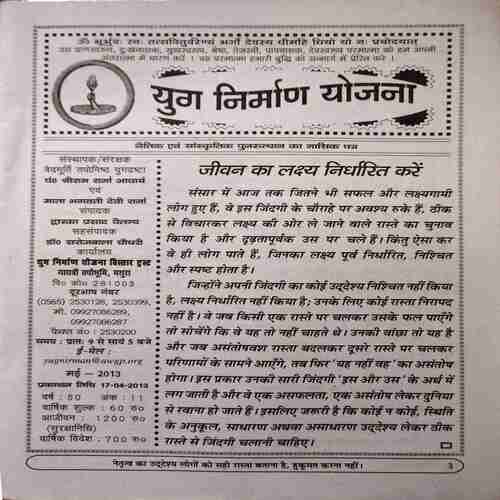 ॐ भूर्भुवः स्वः तत्सवितुर्वरेण्यं भर्गो देवस्य धीमहि धियो यो नः प्रचोदयात्
उस प्राणस्वरूप, दुःखनाशक, सुखस्वरूप, श्रेष्ठ, तेजस्वी, पापनाशक, देवस्वरूप परमात्मा को हम अपनी
अंतरात्मा में धारण करें । वह परमात्मा हमारी बुद्धि को सन्मार्ग में प्रेरित करे ।
युग निर्माण योजना
नैतिक एवं सांस्कृतिक पुनरुत्थान का मासिक पत्र
संस्थापक/संरक्षक
वेदमूर्ति तपोनिष्ठ युगद्रष्टा
पं० श्रीराम शर्मा आचार्य
एवं
माता भगवती देवी शर्मा
संपादक
द्वारका प्रसाद चैतन्य
सहसंपादक
डॉ० सरोजबाला चौधरी
कार्यालय
युग निर्माण योजना विस्तार ट्रस्ट
गायत्री तपोभूमि, मथुरा
पि० को० 281003
दूरभाष नंबर
(0565) 2530128, 2530399,
मो. 09927086289,
09927086287
फैक्स नं० : 2530200
समय : प्रातः 9 से सायं 5 बजे
ई-मेल :
yugnirman@awgp.org
मई – 2013
प्रकाशन तिथि 17-04-2013
वर्ष : 50 अंक : 11
वार्षिक शुल्क : 60 रु०
आजीवन : 1200 रु०
(सुरक्षानिधि)
वार्षिक विदेश . 700 रु०
जीवन का लक्ष्य निर्धारित करें
संसार में आज तक जितने भी सफल और लक्ष्यगामी
लोग हुए हैं, वे इस जिंदगी के चौराहे पर अवश्य रुके हैं, ठीक
से विचारकर लक्ष्य की ओर ले जाने वाले रास्ते का चुनाव
किया है और दृढ़तापूर्वक उस पर चले हैं। किंतु ऐसा कर
वे ही लोग पाते हैं, जिनका लक्ष्य पूर्व निर्धारित, निश्चित
और स्पष्ट होता है।
जिन्होंने अपनी जिंदगी का कोई उद्देश्य निश्चित नहीं किया
है, लक्ष्य निर्धारित नहीं किया है; उनके लिए कोई रास्ता निरापद
नहीं है। वे जब किसी एक रास्ते पर चलकर उसके फल पाएँगे
तो सोचेंगे कि वे यह तो नहीं चाहते थे। उनकी वांछा तो यह है
और जब असंतोषवश रास्ता बदलकर दूसरे रास्ते पर चलकर
परिणामों के सामने आएँगे, तब फिर 'यह नहीं वह' का असंतोष
होगा। इस प्रकार उनकी सारी जिंदगी 'इस और उस' के अर्थ में
लग जाती है और वे एक असफलता, एक असंतोष लेकर दुनिया
से रवाना हो जाते हैं। इसलिए जरूरी है कि कोई न कोई, स्थिति
के अनुकूल, साधारण अथवा असाधारण उद्देश्य लेकर ठीक
रास्ते से जिंदगी चलानी चाहिए।
नेतृत्व का उद्देश्य लोगों को सही रास्ता बताना है, हुकूमत करना नहीं।
3